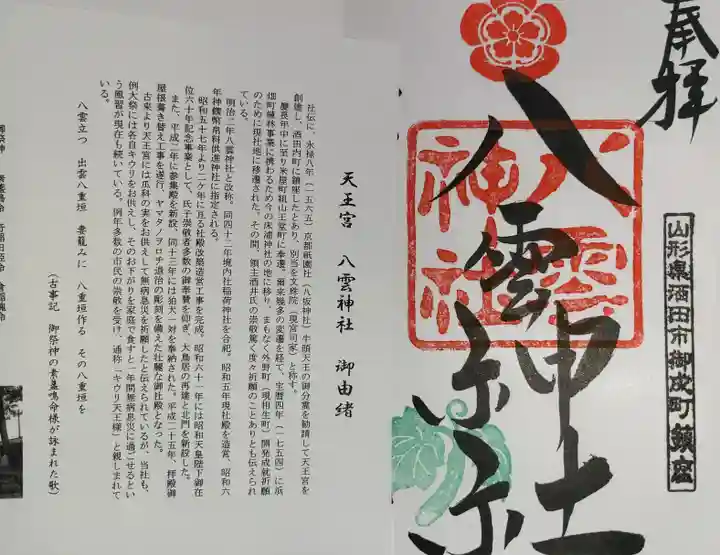 奉拝
八雲神社
八雲神社
山形県酒田市御成町鎮座
天王宮 八雲神社 御由緒
社伝に、永禄八年(一五六五)京都祇園社(八坂神社)牛頭天王の御分霊を勧請して天王宮を
創徳し、酒田内町に鎮座したとあり、別当を文殊院(現宮司家)と称す。
慶長年中に至り米屋町観山王堂町に奉遷、爾来幾多の変遷を経て、宝暦四年(一七五四)に浜
畑町植林事業に携わるため今の床浦神社の地に移り、まもなく外野町(現相生町)開発成就祈願
のために現社地に移遷された。その間、領主酒井氏の崇敬篤く度々祈願のことありとも伝えられ
ている。
明治二年八雲神社と改称、同四十二年境内社稲荷神社を合祀。昭和五年現社殿を造営、昭和六
年神饌幣帛料供進神社に指定される。
昭和五十七年より二ケ年に亘る社殿改築造営工事を完成、昭和六十一年には昭和天皇陛下御在
位六十年記念事業として、氏子崇敬者多数の御奉賛を仰ぎ、大鳥居の再建と北門を新設した。
また、平成二年に参集殿を新設、同十三年には狛犬一対を奉納された。平成二十五年、拝殿御
屋根葺き替え工事を遂行、ヤマタノヲロチ退治の彫刻を備えた壮麗な御社殿となった。
古来より天王宮には瓜科の実をお供えして無病息災を祈願したと伝えられているが、当社も、
例大祭には各自キウリをお供えし、そのお下がりを家庭で食すと一年間無病息災に過ごせるとい
う風習が現在も続いている。例年多数の市民の崇敬を受け、通称「キウリ天王様」と親しまれて
いる。
八雲立つ 出雲八重垣 妻籠みに 八重垣作る その八重垣を
(古事記 御祭神の素戔鳴命様が詠まれた歌)